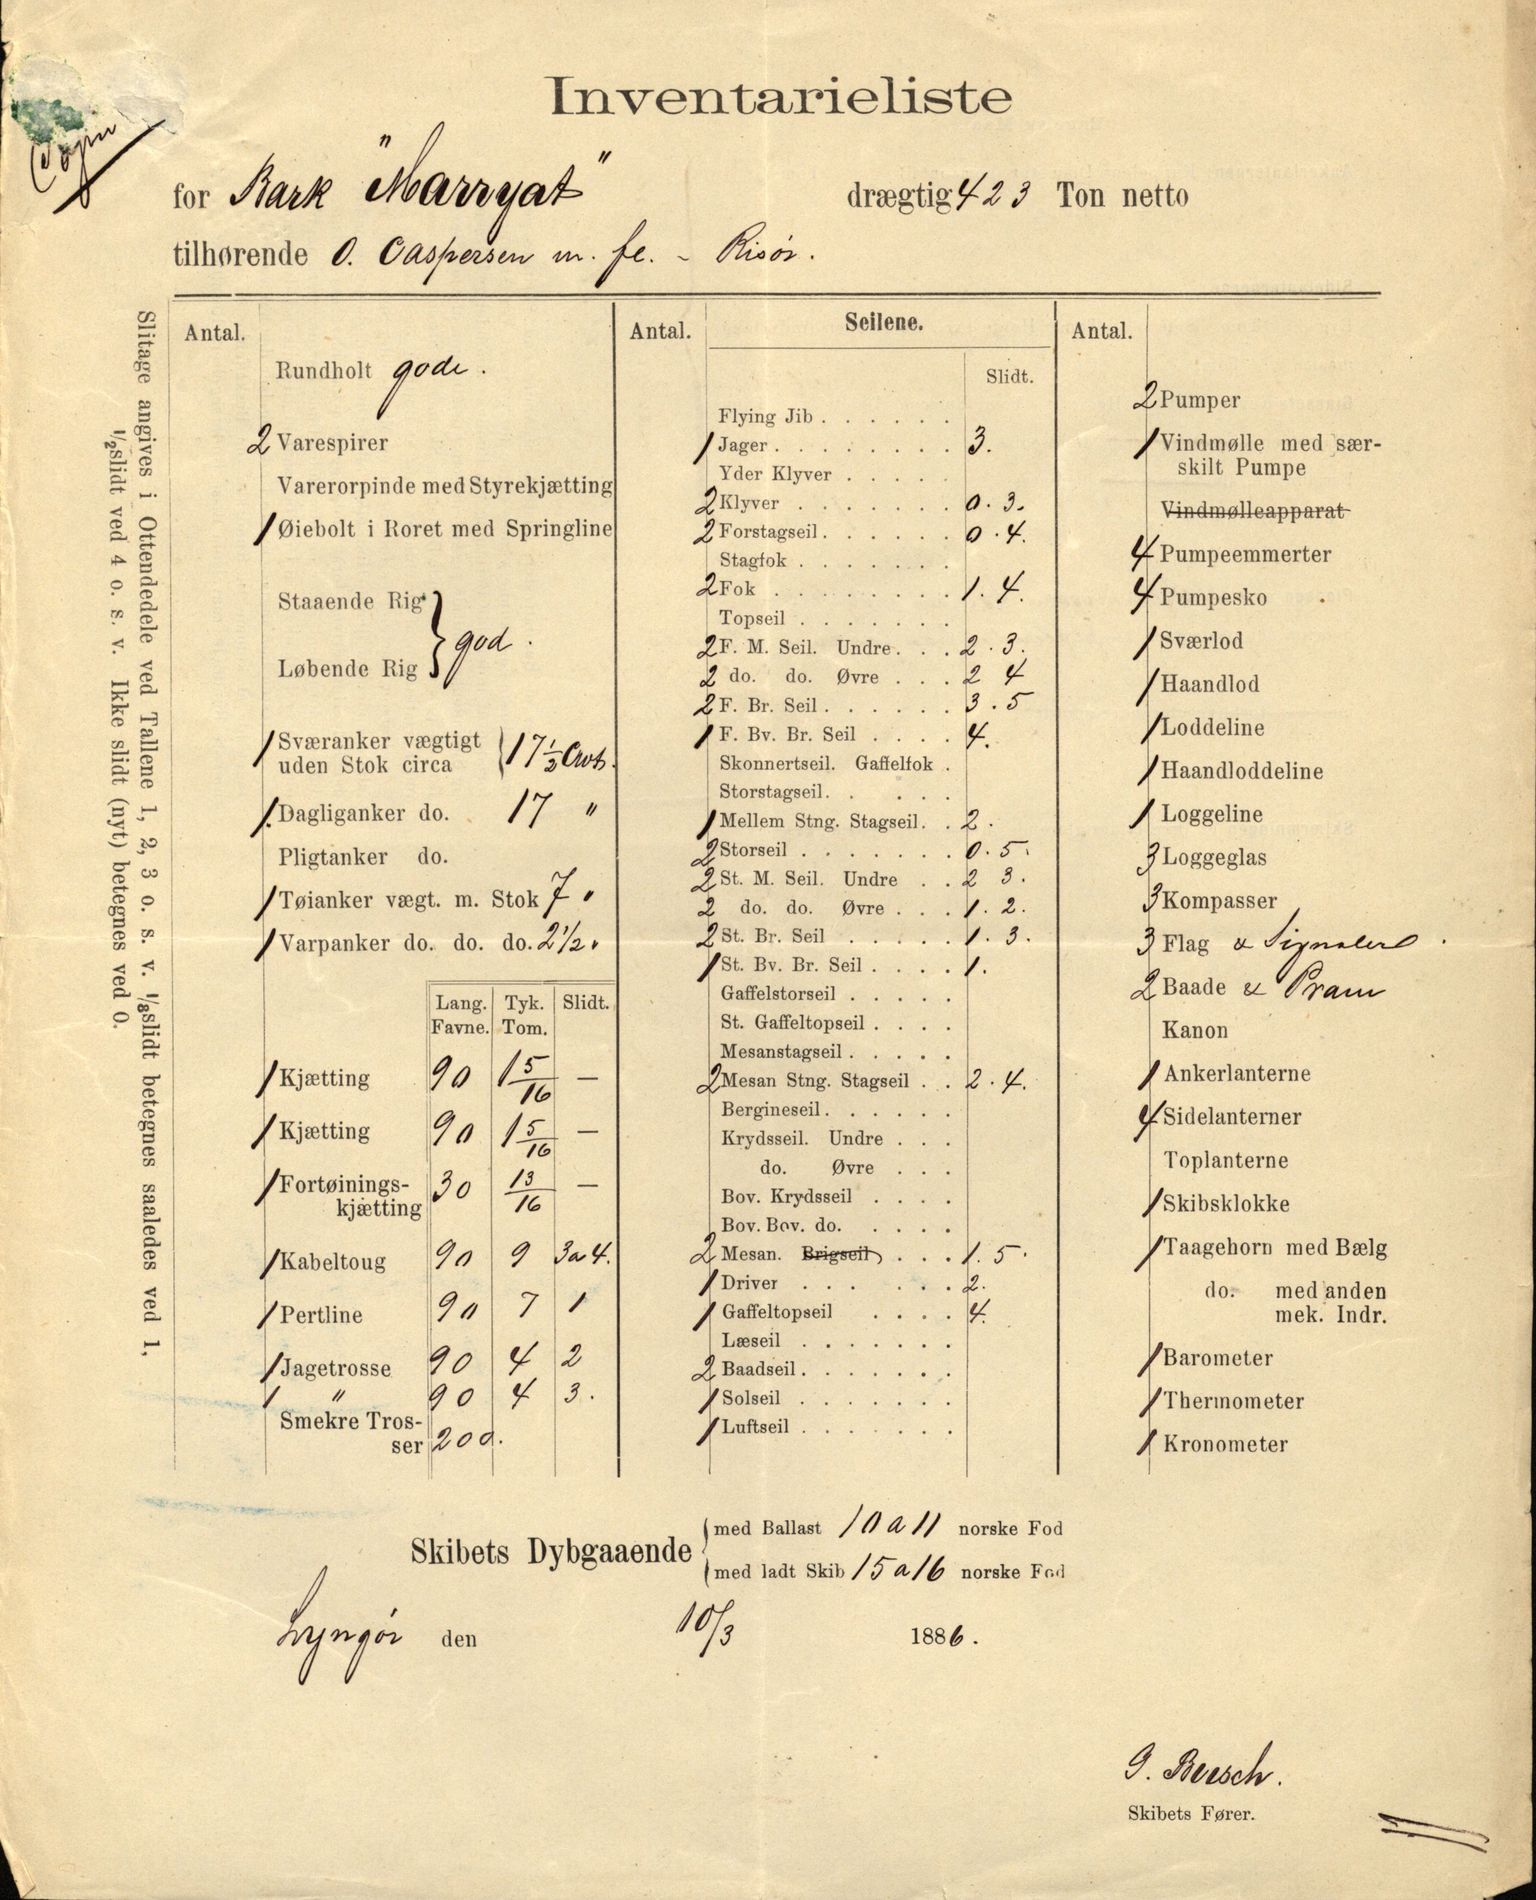 Inventarieliste
for Bark "Marryat" drægtig 423 Ton netto
tilhørende O. Caspersen m. fl. - Risør.
Slitage angives i Ottendedele ved Tallene 1, 2, 3 o. s. v. 1/8 slidt betegnes saaledes ved 1,
1/2 slidt ved 4 o. s. v. Ikke slidt (nyt) betegnes ved 0.
Antal.
Rundholt gode.
2 Varespirer
Varerorpinde med Styrekjætting
1 Øiebolt i Roret med Springline
Staaende Rig } god.
Løbende Rig
1 Sværanker vægtigt
uden Stok circa 17 1/2 Cwts.
1. Dagliganker do. 17 "
Pligtanker do.
1 Tøianker vægt. m. Stok 7 "
1 Varpanker do. do. do. 2 1/2 "
Lang. Tyk. Slidt.
Favne. Tom.
1 Kjætting 90 1 5/16 —
1 Kjætting 90 1 5/16 —
1 Fortøinings-
kjætting 30 13/16 —
1 Kabeltoug 90 9 3 a 4.
1 Pertline 90 7 1
1 Jagetrosse 90 4 2
1 " 90 4 3.
Smekre Tros-
ser 200.
Antal. Seilene.
Slidt.
Flying Jib . . . . .
1 Jager . . . . . . . 3.
Yder Klyver . . . . .
2 Klyver . . . . . . . 0. 3.
2 Forstagseil . . . . . . 0. 4.
Stagfok . . . . . . .
2 Fok . . . . . . . . 1. 4.
Topseil . . . . . . .
2 F. M. Seil. Undre . . . 2. 3.
2 do. do. Øvre . . . 2 4
2 F. Br. Seil . . . . . . 3. 5
1 F. Bv. Br. Seil . . . . 4.
Skonnertseil. Gaffelfok .
Storstagseil. . . . .
1 Mellem Stng. Stagseil. . 2.
2 Storseil . . . . . . . 0. 5.
2 St. M. Seil. Undre . . 2 3.
2 do. do. Øvre . . . 1. 2.
2 St. Br. Seil . . . . . 1. 3.
1 St. Bv. Br. Seil . . . . 1.
Gaffelstorseil . . . . .
St. Gaffeltopseil . . . .
Mesanstagseil . . . . .
2 Mesan Stng. Stagseil . . 2. 4.
Bergineseil. . . . . .
Krydsseil. Undre . . .
do. Øvre . . .
Bov. Krydsseil . . . .
Bov. Bov. do. . . . .
2 Mesan. Brigseil . . . 1. 5.
1 Driver . . . . . . 2.
1 Gaffeltopseil . . . . 4.
Læseil . . . . . .
2 Baadseil. . . . . . .
1 Solseil . . . . . . .
1 Luftseil . . . . . . .
Antal.
2 Pumper
1 Vindmølle med sær-
skilt Pumpe
Vindmølleapparat
4 Pumpeemmerter
4 Pumpesko
1 Sværlod
1 Haandlod
1 Loddeline
1 Haandloddeline
1 Loggeline
3 Loggeglas
3 Kompasser
3 Flag & Signaler
2 Baade & Pram
Kanon
1 Ankerlanterne
4 Sidelanterner
Toplanterne
1 Skibsklokke
1 Taagehorn med Bælg
do. med anden
mek. Indr.
1 Barometer
1 Thermometer
1 Kronometer
Skibets Dybgaaende
med Ballast 10 a 11 norske Fod
med ladt Skib 15 a 16 norske Fod
Lyngør den 10/3 1886.
Skibets Fører.